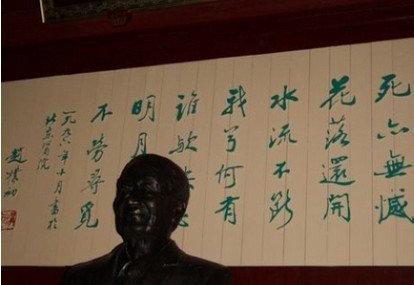 死亦無憾
花落還開
水流不断
我兮何有
誰歟安息
明月
不勞尋覓
一九九六年十月書於
北京醫院
趙樸初